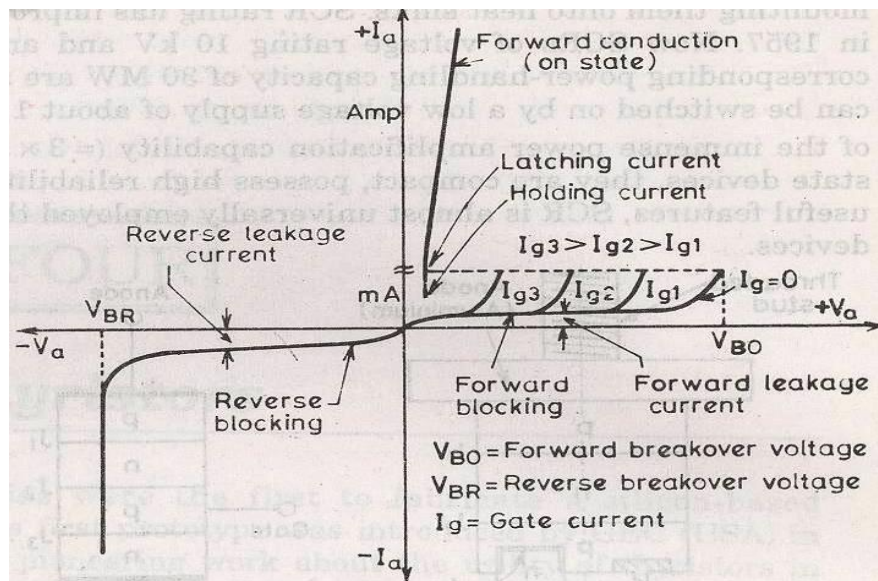 +Ia
Forward conduction
(on state)
Amp
Latching current
Holding current
Reverse leakage
current
Ig3>Ig2>Ig1
mA
Ig3
Ig2
Ig1
Ig=0
VBR
+Va
-Va
VBO
Reverse
blocking
Forward
blocking
Forward leakage
current
VBO=Forward breakover voltage
VBR=Reverse breakover voltage
Ig=Gate current
-Ia